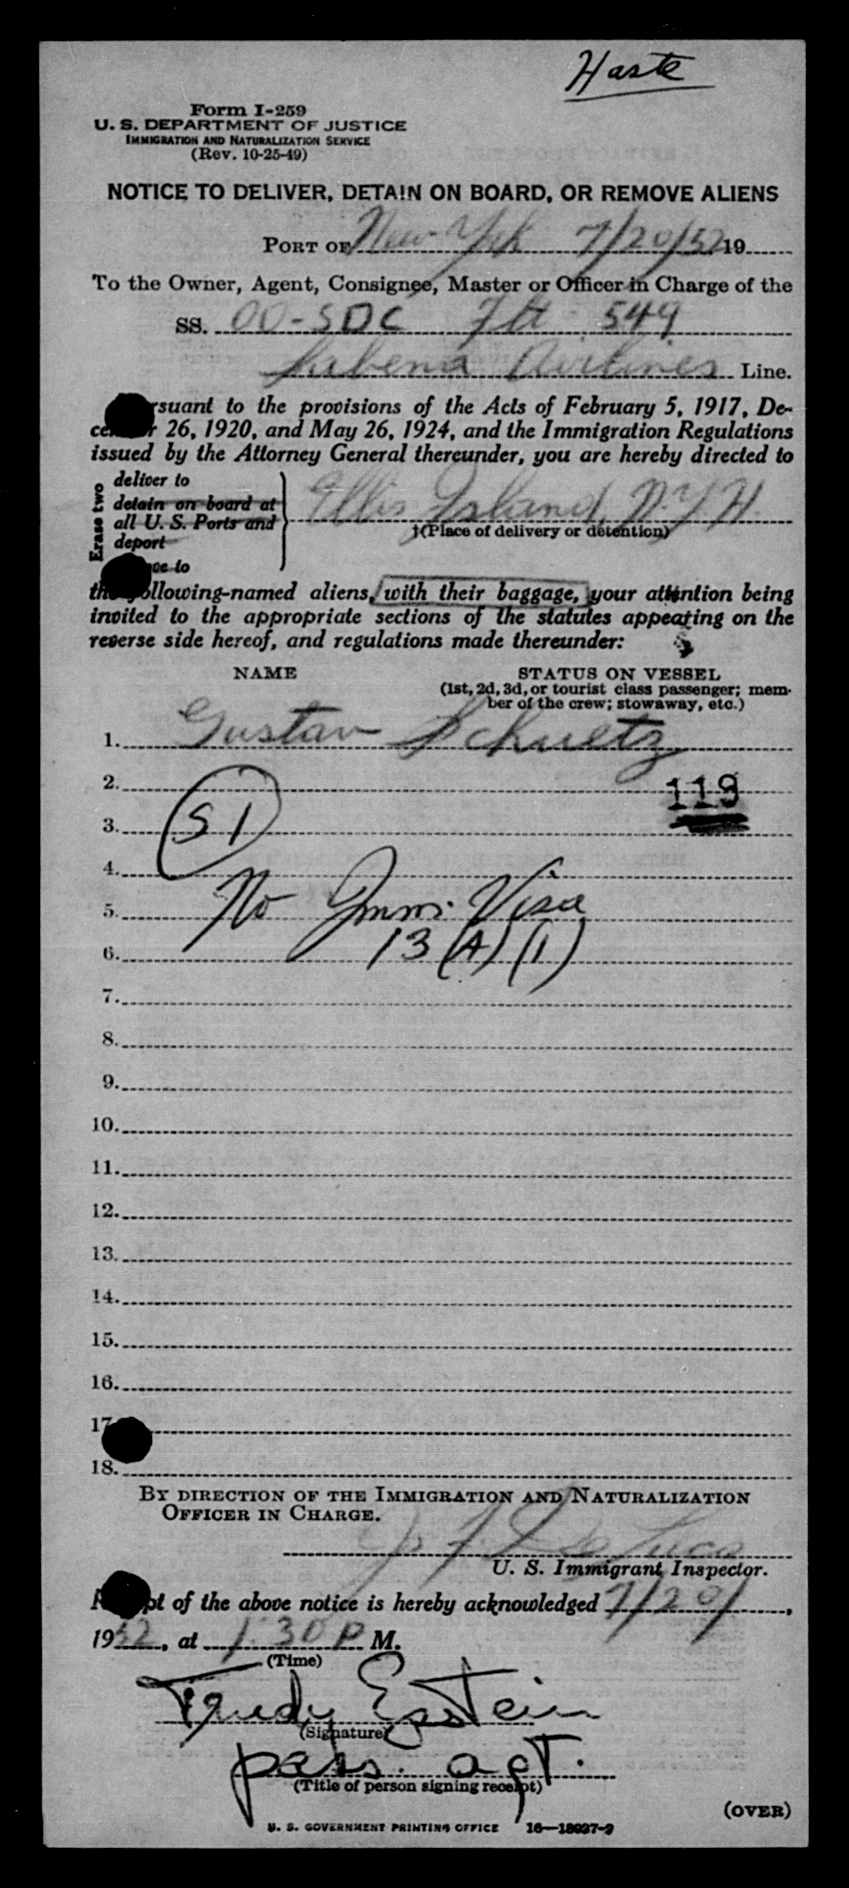 Haste
Form I-259
U. S. DEPARTMENT OF JUSTICE
IMMIGRATION AND NATURALIZATION SERVICE
(Rev. 10-25-49)
NOTICE TO DELIVER, DETAIN ON BOARD, OR REMOVE ALIENS
PORT OF New York 7/20/52 19
To the Owner, Agent, Consignee, Master or Officer in Charge of the
SS. OO-SDC Flt 549
Sabena Airlines Line.
rsuant to the provisions of the Acts of February 5, 1917, De-
ce r 26, 1920, and May 26, 1924, and the Immigration Regulations
issued by the Attorney General thereunder, you are hereby directed to
Erase two
deliver to
detain on board at
all U. S. Ports and
deport
ce to
Ellis Island, N.Y.H.
(Place of delivery or detention)
the following-named aliens, with their baggage, your attention being
invited to the appropriate sections of the statutes appearing on the
reverse side hereof, and regulations made thereunder:
NAME STATUS ON VESSEL
(1st, 2d, 3d, or tourist class passenger; mem-
ber of the crew; stowaway, etc.)
1. Gustav Schuetz
2. 119
3. SI
4.
5. No Immi. Visa
6. 13 (A) (1)
7.
8.
9.
10.
11.
12.
13.
14.
15.
16.
17
18.
BY DIRECTION OF THE IMMIGRATION AND NATURALIZATION
OFFICER IN CHARGE.
De Luca
U. S. Immigrant Inspector.
R pt of the above notice is hereby acknowledged 7/20/,
1952, at 1:30 P M.
(Time)
Trudy Epstein
(Signature)
pass. agt.
(Title of person signing receipt)
(OVER)
U. S. GOVERNMENT PRINTING OFFICE 16—18937-2